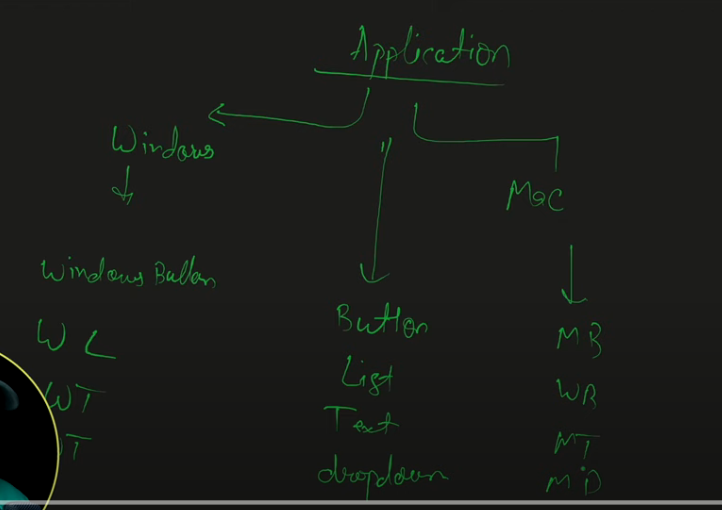 Application
Windows
Mac
Windows Button
WL
WT
T
Button
List
Text
dropdown
MB
WB
MT
MD